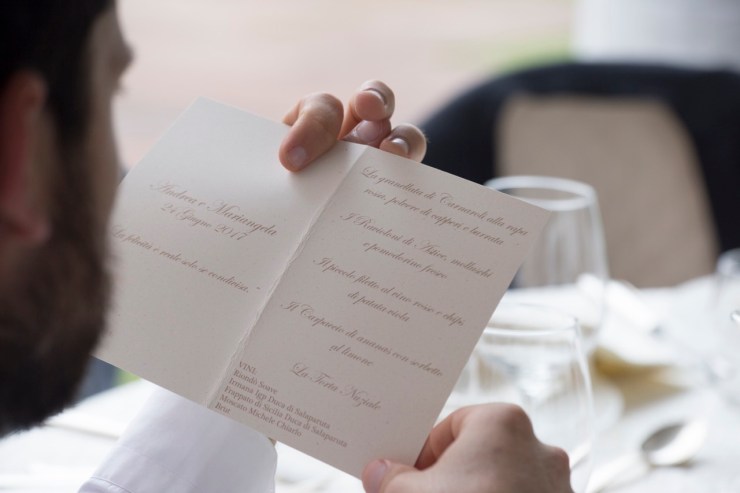 Andrea e Mariangela
24 Giugno 2017
"La felicità è reale solo se condivisa."
La granellata di Carnaroli alla rapa
rossa, polvere di capperi e burrata
I Ravioloni di Astice, molluschi
e pomodorino fresco
Il piccolo filetto al vino rosso e chips
di patata viola
Il Carpaccio di ananas con sorbetto
al limone
La Torta Nuziale
VINI:
Riondò Soave
Irmana Igp Duca di Salaparuta
Frappato di Sicilia Duca di Salaparuta
Moscato Michele Chiarlo